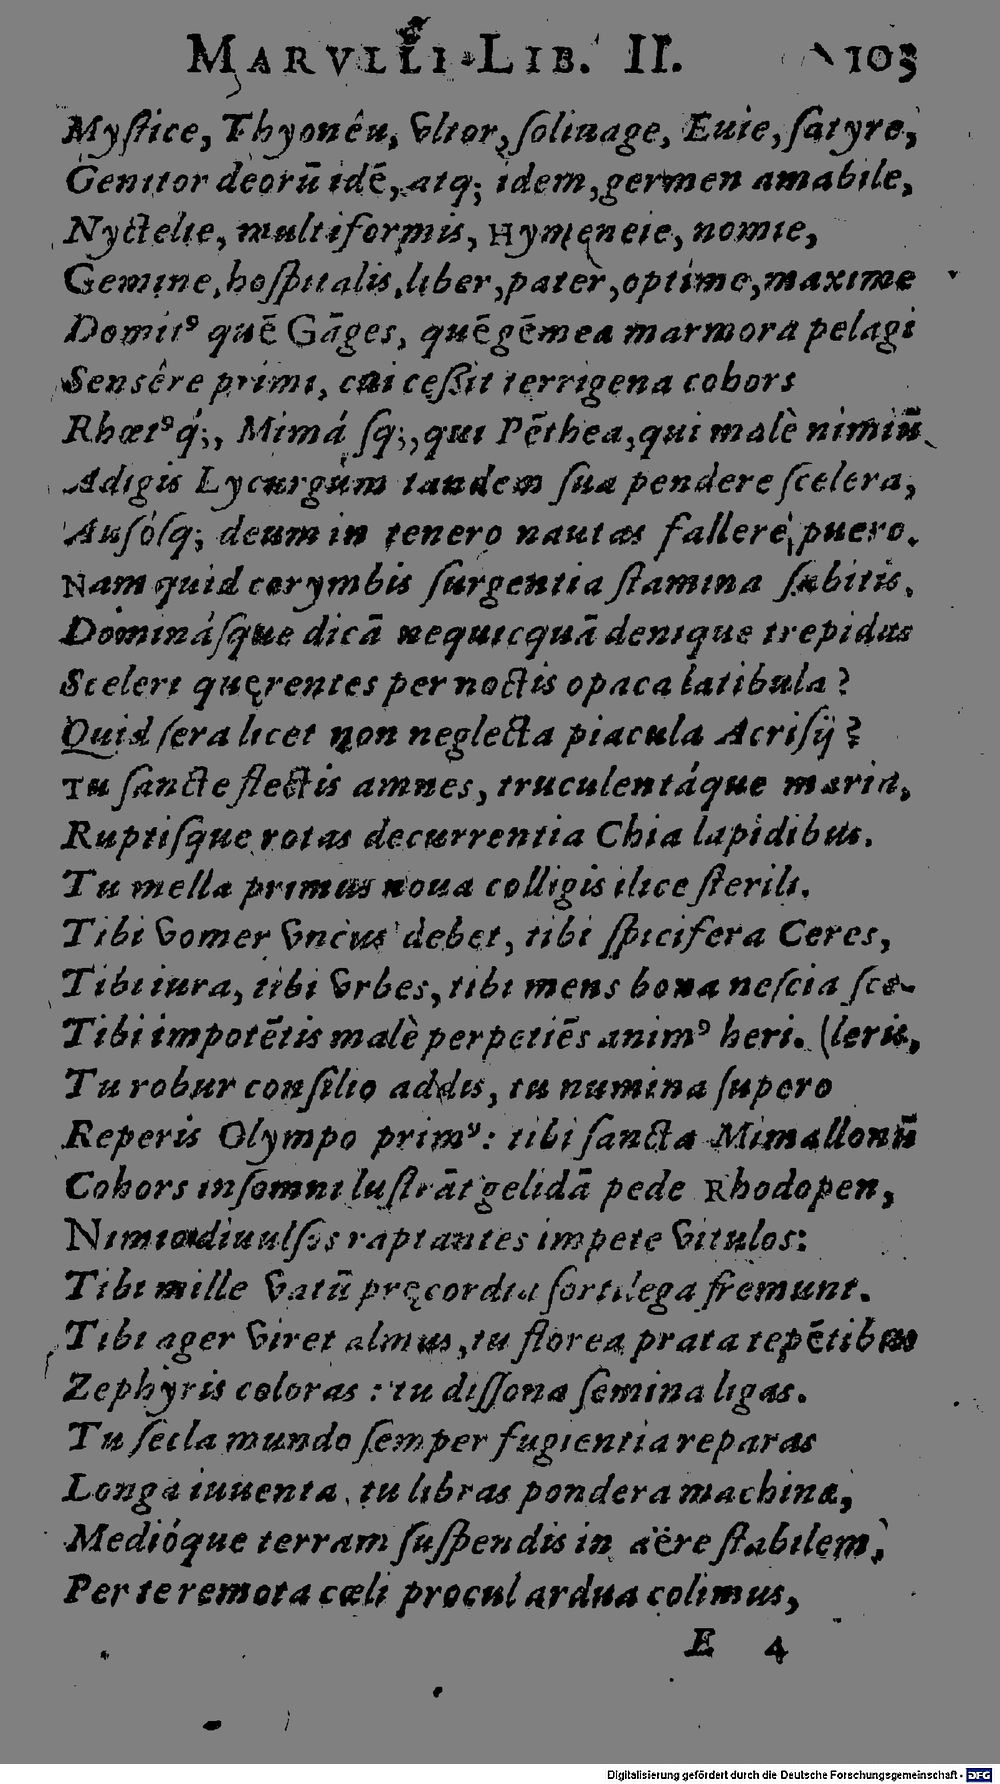 MARVLLI LIB. II. 103
Myſtice, Thyonêu, vltor, ſoliuage, Euie, ſatyre,
Genitor deorū idē, atq; idem, germen amabile,
Nyctelie, multiformis, Hymeneie, nomie,
Gemine, hoſpitalis, liber, pater, optime, maxime
Domitꝰ quē Gāges, quē gēmea marmora pelagi
Sensêre primi, cui ceſſit terrigena cohors
Rhœtꝰq́;, Mimáſq;, qui Pēthea, qui malè nimiū
Adigis Lycurgum tandem ſua pendere ſcelera,
Auſóſq; deum in tenero nautas fallere puero.
Nam quid corymbis ſurgentia ſtamina ſubitis,
Dominásſque dicā nequicquā denique trepidas
Sceleri quęrentes per noctis opaca latibula?
Quid ſera licet non neglecta piacula Acriſij?
Tu ſancte flectis amnes, truculentáque maria,
Ruptiſque rotas decurrentia Chia lapidibus.
Tu mella primus noua colligis ilice ſterili.
Tibi vomer vncus debet, tibi ſpicifera Ceres,
Tibi iura, tibi vrbes, tibi mens bona neſcia ſce-
Tibi impotētis malè perpetiēs animꝰ heri. (leris,
Tu robur conſilio addis, tu numina ſupero
Reperis Olympo primꝰ: tibi ſancta Mimallonū
Cohors inſomni luſtrāt gelidā pede Rhodopen,
Nimio diuulſos raptantes impete vitulos:
Tibi mille vatū pręcordia ſortilega fremunt.
Tibi ager viret almus, tu florea prata tepētibus
Zephyris coloras: tu diſſona ſemina ligas.
Tu ſecla mundo ſemper fugientia reparas
Longa iuuenta, tu libras pondera machinæ,
Medióque terram ſuſpendis in aëre ſtabilem,
Per te remota cœli procul ardua colimus,
E 4
Digitalisierung gefördert durch die Deutsche Forschungsgemeinschaft - DFG